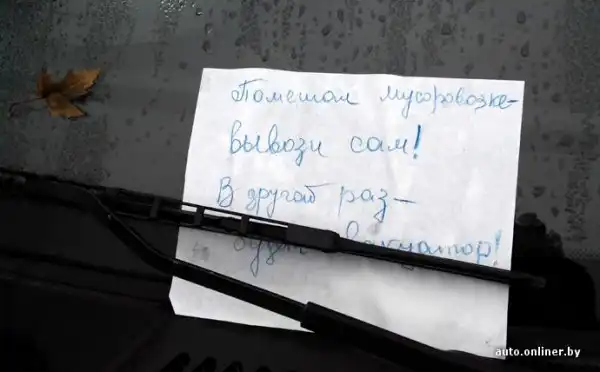 Помешал мусоровозке-
вывози сам!
В другой раз-
будет эвакуатор!
auto.onliner.by